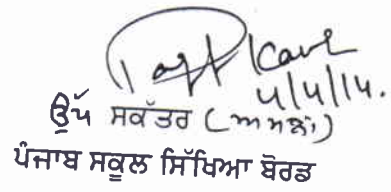 4/4/14.
ਉਪ ਸਕੱਤਰ (ਅਮਲਾ)
ਪੰਜਾਬ ਸਕੂਲ ਸਿੱਖਿਆ ਬੋਰਡ